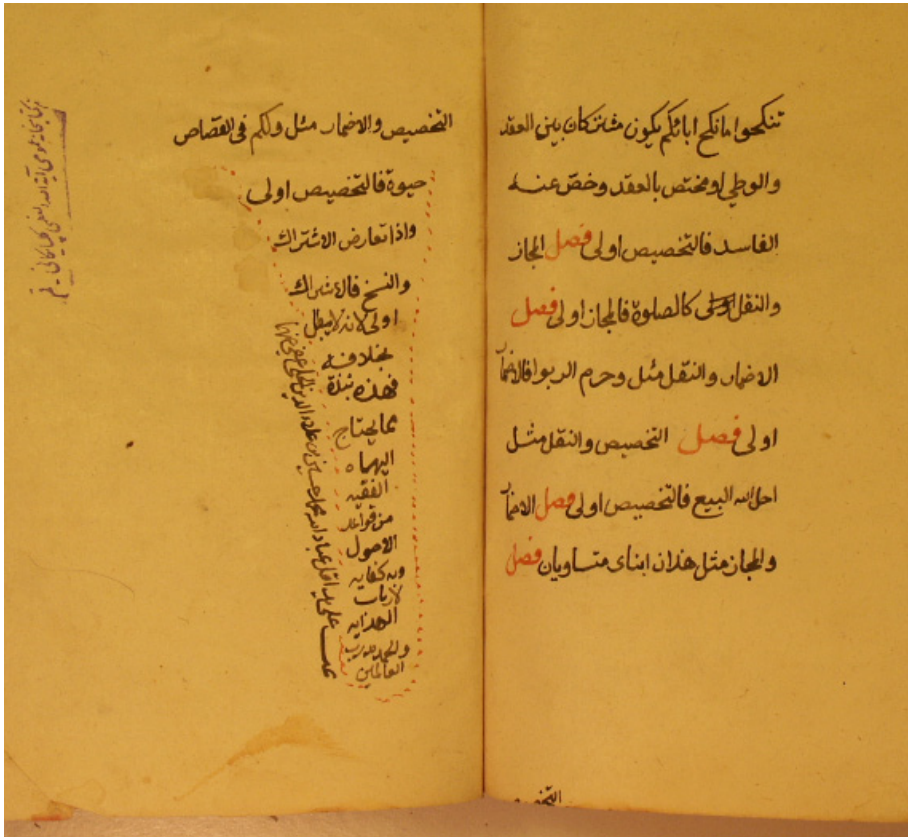 تنكحوا ما نكح ابائكم يكون مشتركان بين العقد
والوطي او مختص بالعقد وخص عنه
الفاسد فالتخصيص اولى فصل المجاز
والنقل اولى كالصلوة فالمجاز اولى فصل
الاضمار والنقل مثل وحرم الربوا فالاضمار
اولى فصل التخصيص والنقل مثل
احل الله البيع فالتخصيص اولى فصل الاضمار
والمجاز مثل هذان ابناى متساويان فصل
التخصيص والاضمار مثل ولكم فى القصاص
حيوة فالتخصيص اولى
واذا تعارض الاشتراك
والنسخ فالاشتراك
اولى لانه لا يبطل
بخلافه
فهذه نبذة
مما يحتاج
اليها
الفقيه
من قواعد
الاصول
وبه كفايه
لارباب
الهدايه
والحمد لله رب
العالمين
على يد اقل عباد الله محمد حسين بن علاء الدين